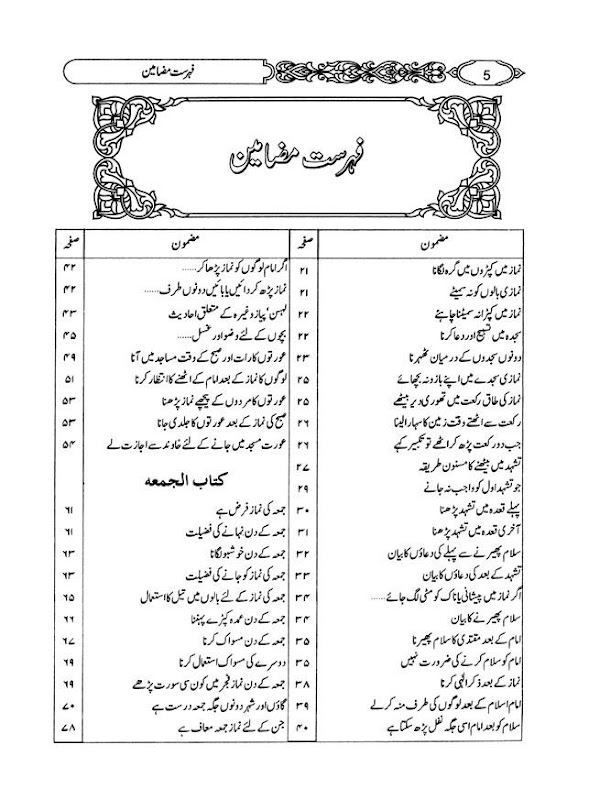 5
فہرست مضامین
فہرست مضامین
مضمون صفحہ
نماز میں کپڑوں میں گرہ لگانا ۲۱
نمازی بالوں کو نہ سمیٹے ۲۱
نماز میں کپڑا نہ سمیٹنا چاہئے ۲۲
سجدہ میں تسبیح اور دعا کرنا ۲۲
دونوں سجدوں کے درمیان ٹھہرنا ۲۳
نمازی سجدے میں اپنے بازو نہ بچھائے ۲۵
نمازی کی طاق رکعت میں تھوڑی دیر بیٹھے ۲۵
رکعت سے اٹھتے وقت زمین کا سہارا لینا ۲۶
جب دو رکعت پڑھ کر اٹھے تو تکبیر کہے ۲۶
تشہد میں بیٹھنے کا مسنون طریقہ ۲۷
جو تشہد اول کو واجب نہ جانے ۲۹
پہلے قعدہ میں تشہد پڑھنا ۳۰
آخری قعدہ میں تشہد پڑھنا ۳۱
سلام پھیرنے سے پہلے کی دعاؤں کا بیان ۳۲
تشہد کے بعد کی دعاؤں کا بیان ۳۳
اگر نماز میں پیشانی یا ناک کو مٹی لگ جائے...... ۳۴
سلام پھیرنے کا بیان ۳۴
امام کے بعد مقتدی کا سلام پھیرنا ۳۵
امام کو سلام کرنے کی ضرورت نہیں ۳۵
نماز کے بعد ذکر الٰہی کرنا ۳۸
امام سلام کے بعد لوگوں کی طرف منہ کر لے ۳۹
سلام کو بعد امام اسی جگہ نفل پڑھ سکتا ہے ۴۰
مضمون صفحہ
اگر امام لوگوں کو نماز پڑھا کر...... ۴۲
نماز پڑھ کر دائیں یا بائیں دونوں طرف...... ۴۲
لہسن‘ پیاز وغیرہ کے متعلق احادیث ۴۳
بچوں کے لئے وضو اور غسل...... ۴۵
عورتوں کا رات اور صبح کے وقت مساجد میں آنا ۴۹
لوگوں کا نماز کے بعد امام کے اٹھنے کا انتظار کرنا ۵۱
عورتوں کا مردوں کے پیچھے نماز پڑھنا ۵۳
صبح کی نماز کے بعد عورتوں کا جلدی جانا ۵۳
عورت مسجد میں جانے کے لئے خاوند سے اجازت لے ۵۴
کتاب الجمعه
جمعہ کی نماز فرض ہے ۶۱
جمعہ کے دن نہانے کی فضیلت ۶۱
جمعہ کے دن خوشبو لگانا ۶۳
جمعہ کی نماز کو جانے کی فضیلت ۶۳
جمعہ کی نماز کے لئے بالوں میں تیل کا استعمال ۶۵
جمعہ کے دن عمدہ کپڑے پہننا ۶۶
جمعہ کے دن مسواک کرنا ۶۷
دوسرے کی مسواک استعمال کرنا ۶۹
جمعہ کے دن نماز فجر میں کون سی سورت پڑھے ۶۹
گاؤں اور شہر دونوں جگہ جمعہ درست ہے ۷۰
جن کے لئے نماز جمعہ معاف ہے ۷۸